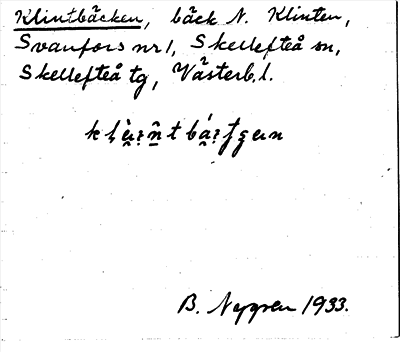 Klintbäcken, bäck N. Klinten,
Svanfors nr 1, Skellefteå sn,
Skellefteå tg, Västerb. l.
B. Nygren 1933.